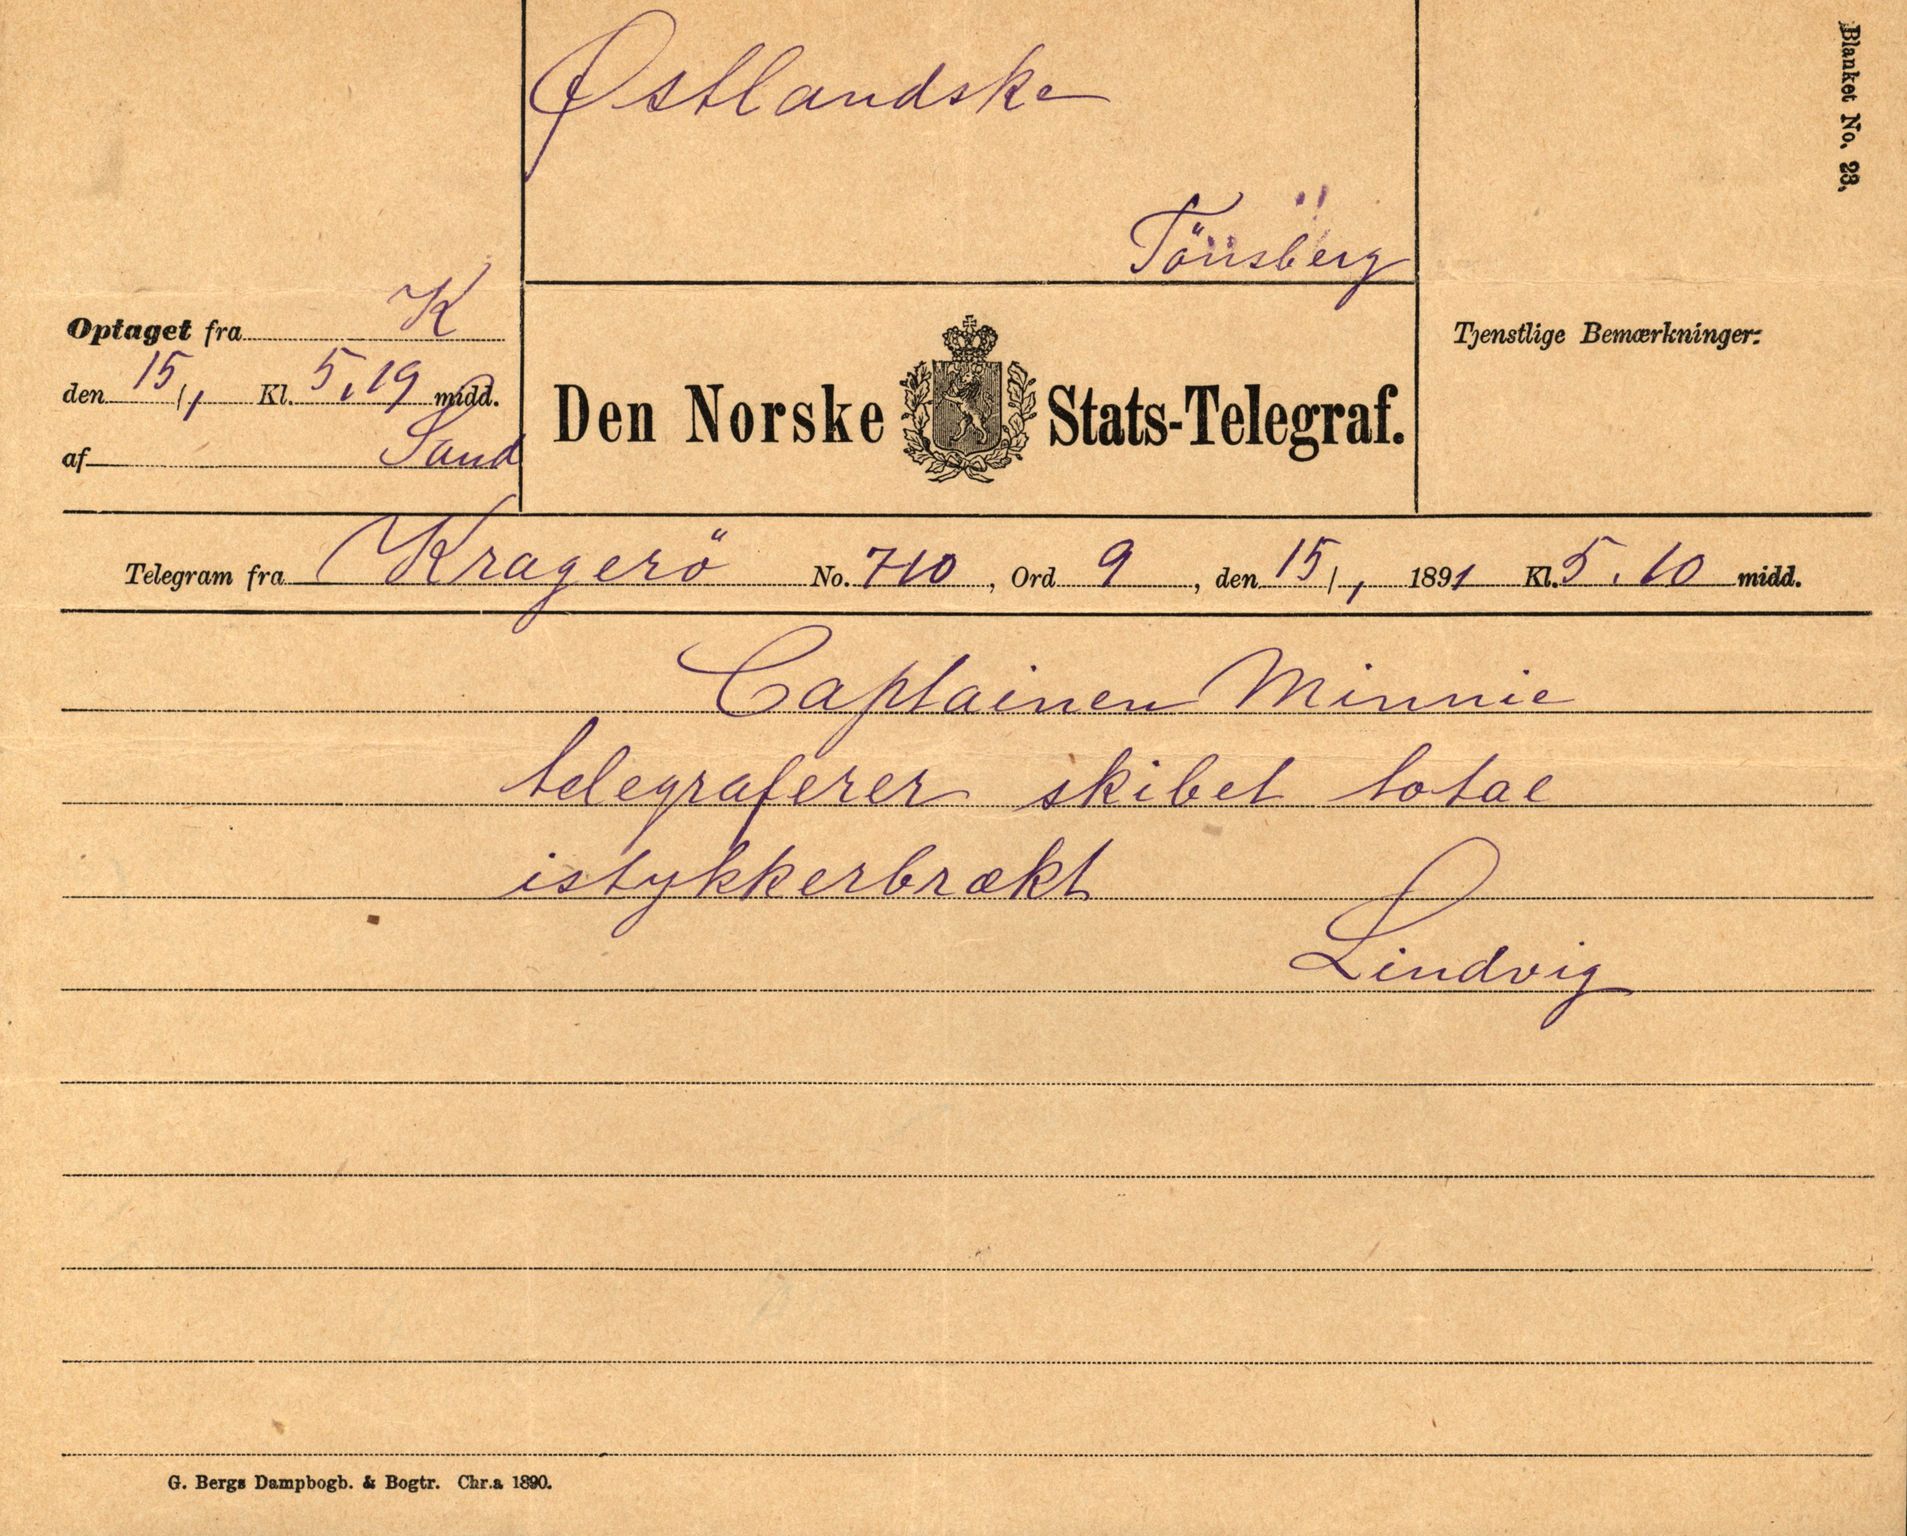 Blanket No. 23.
Østlandske
Tönsberg
Optaget fra K
den 15/1 Kl. 5.19 midd.
af Sand
Den Norske Stats-Telegraf.
Tjenstlige Bemærkninger:
Telegram fra Kragerö No. 710, Ord 9, den 15/1 1891 Kl. 5.10 midd.
Captainen Minnie
telegraferer skibet total
istykkerbrækt
Lindvig
G. Bergs Dampbogb. & Bogtr. Chr.a 1890.